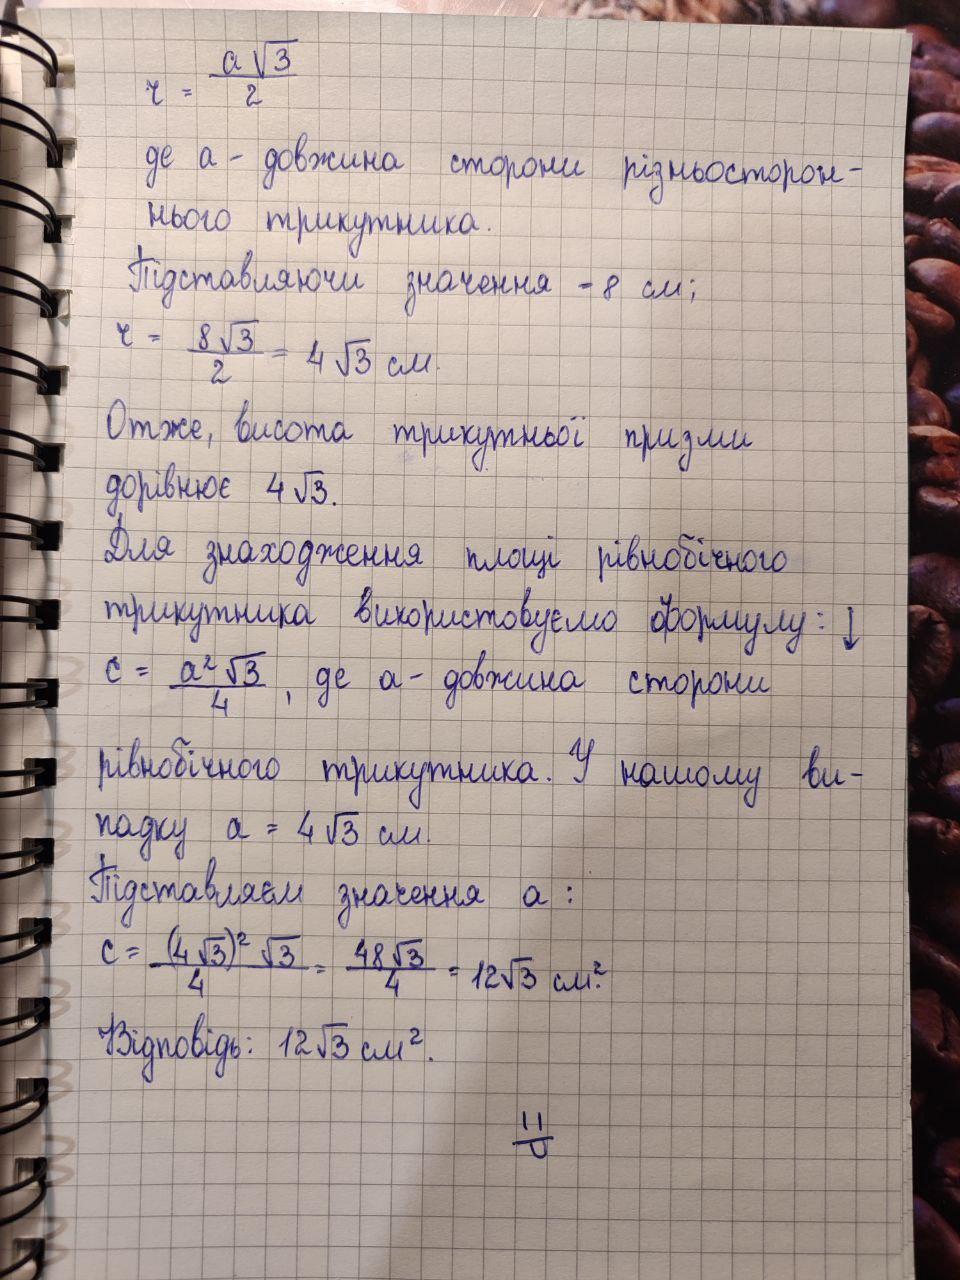 r = a√3/2
де а - довжина сторони різньосторон-
нього трикутника.
Підставляючи значення - 8 см;
r = 8√3/2 = 4√3 см.
Отже, висота трикутньої призми
дорівнює 4√3.
Для знаходження площі рівнобічного
трикутника використовуємо формулу: ↓
с = a²√3/4, де а - довжина сторони
рівнобічного трикутника. У нашому ви-
падку а = 4√3 см.
Підставляєм значення а:
с = (4√3)²√3/4 = 48√3/4 = 12√3 см².
Відповідь: 12√3 см².
11